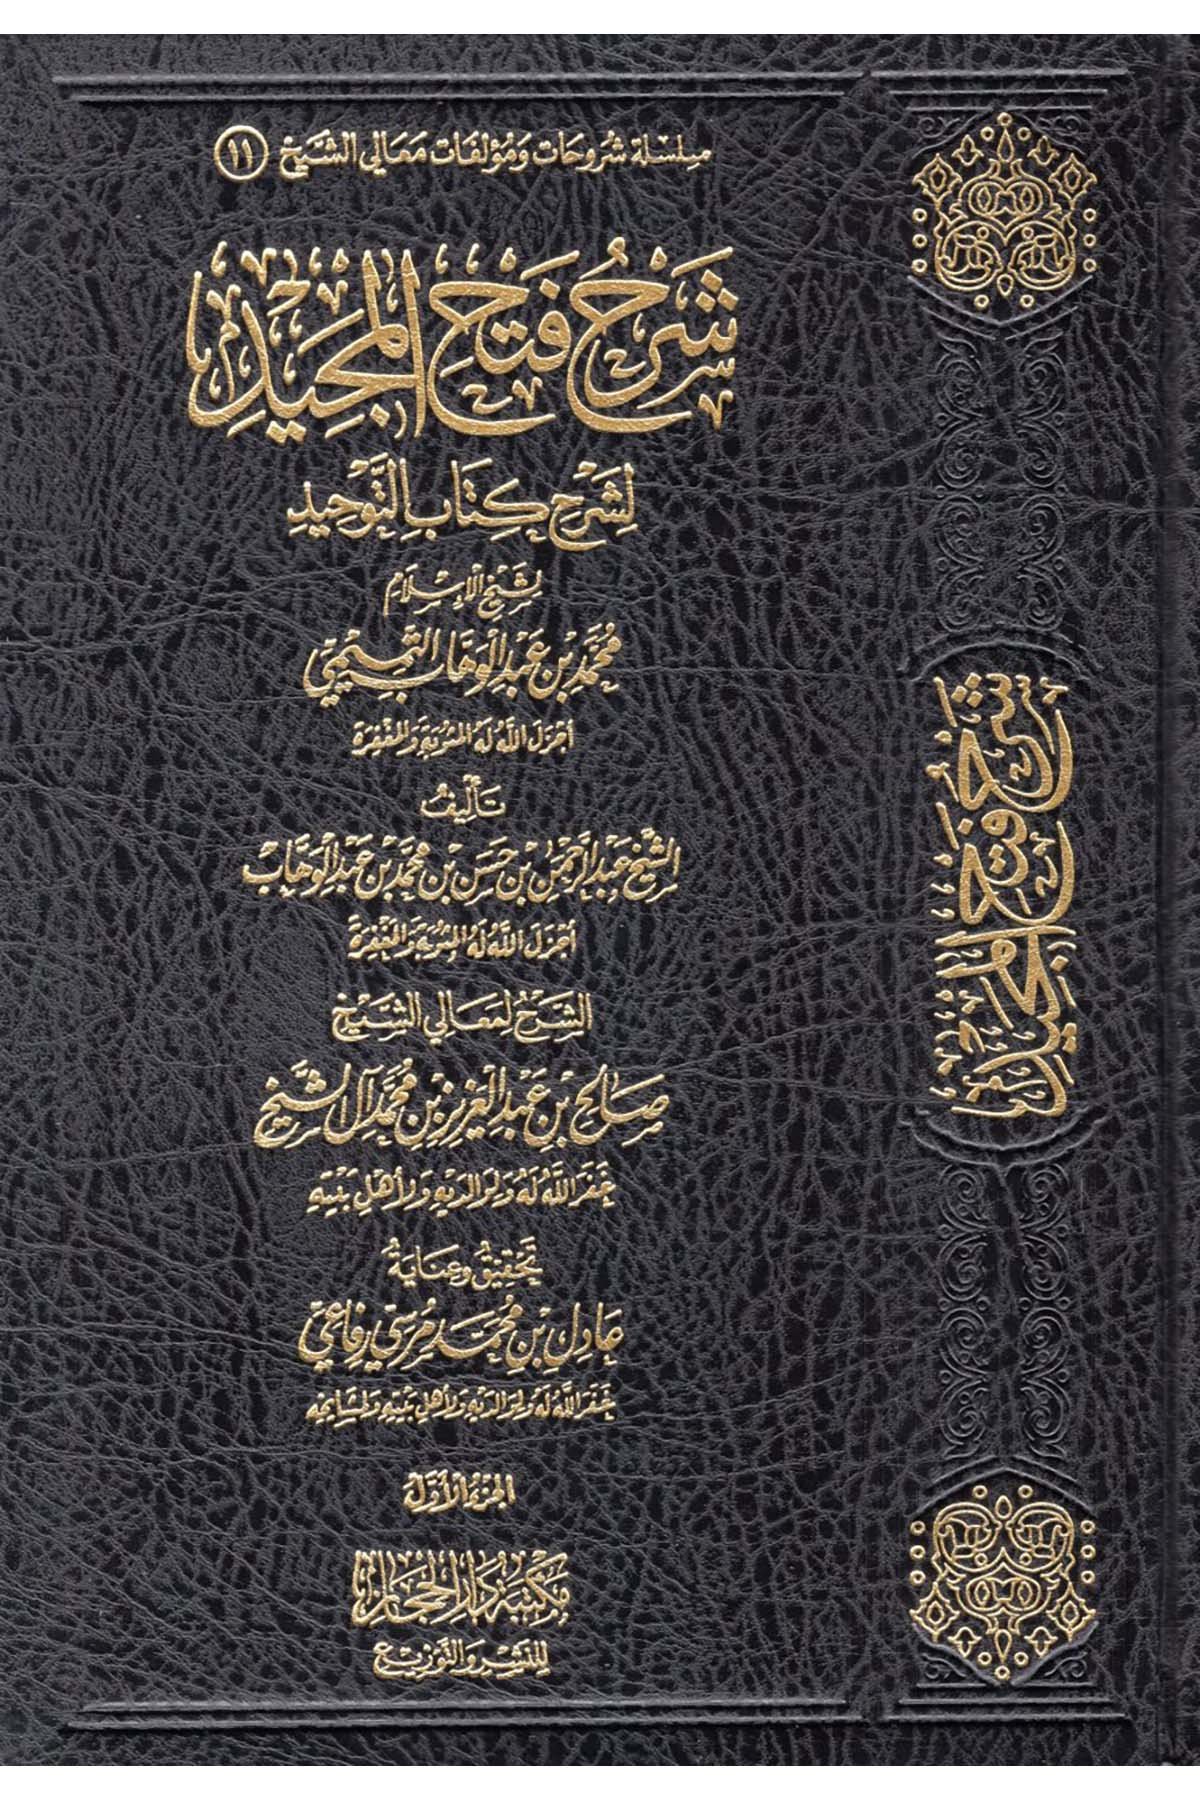 سلسلة شروحات ومؤلفات معالي الشيخ ١١
شَرْحُ فَتْحِ المَجِيدِ
لِشَرْحِ كِتَابِ التَّوْحِيدِ
لِشَيْخِ الإِسْلَامِ
مُحَمَّدِ بْنِ عَبْدِ الْوَهَّابِ التَّمِيمِيِّ
أَجْزَلَ اللَّهُ لَهُ المَثُوبَةَ وَالمَغْفِرَةَ
تَأْلِيفُ
الشَّيْخِ عَبْدِ الرَّحْمَنِ بْنِ حَسَنِ بْنِ مُحَمَّدِ بْنِ عَبْدِ الْوَهَّابِ
أَجْزَلَ اللَّهُ لَهُ المَثُوبَةَ وَالمَغْفِرَةَ
الشَّرْحُ لِمَعَالِي الشَّيْخِ
صَالِحِ بْنِ عَبْدِ الْعَزِيزِ بْنِ مُحَمَّدٍ آلِ الشَّيْخِ
غَفَرَ اللَّهُ لَهُ وَلِوَالِدَيْهِ وَلِأَهْلِ بَيْتِهِ
تَحْقِيقُ وَعِنَايَةُ
عَادِلِ بْنِ مُحَمَّد مُرْسِي رِفَاعِي
غَفَرَ اللَّهُ لَهُ وَلِوَالِدَيْهِ وَلِأَهْلِ بَيْتِهِ وَلِمَشَايِخِهِ
الجُزْءُ الْأَوَّلُ
مَكْتَبَةُ دَارِ الْحِجَازِ
لِلنَّشْرِ وَالتَّوْزِيعِ
شَرْحُ فَتْحِ المَجِيدِ